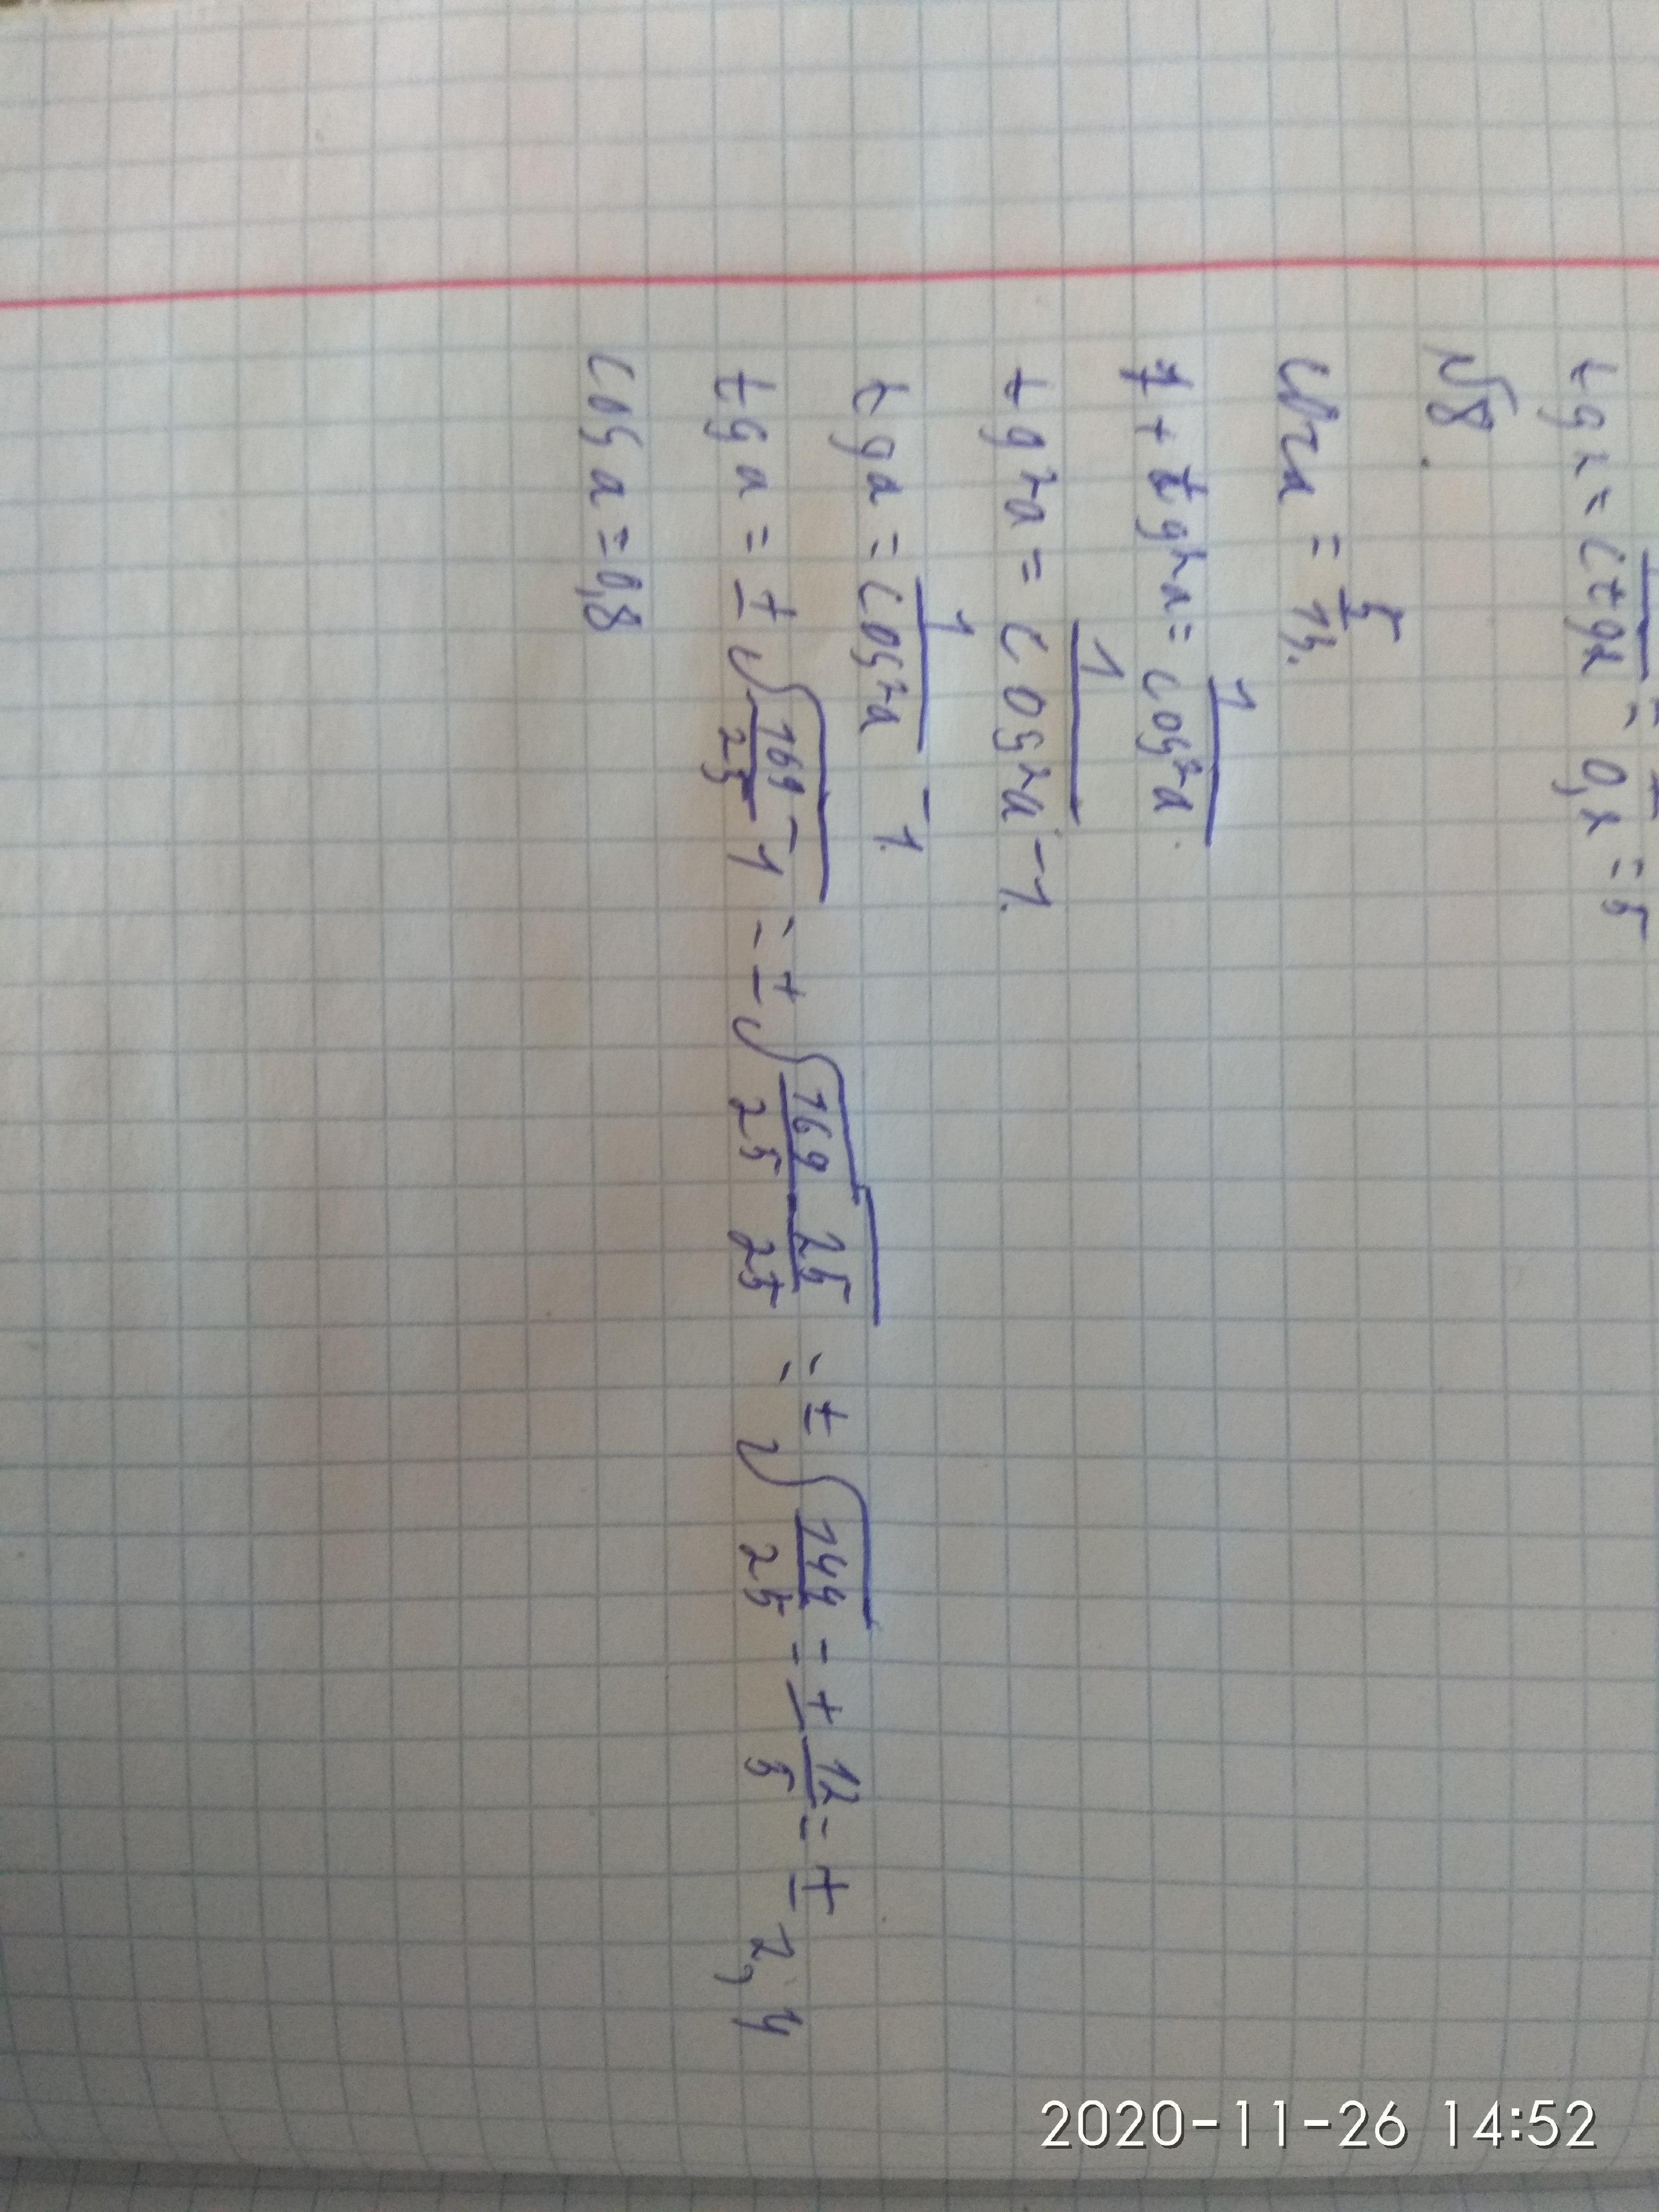 tg α = 1/ctg α = 1/0,2 = 5
√8.
cos a = 5/13.
1 + tg²a = 1/cos²a.
tg²a = 1/cos²a - 1.
tg a = 1/cos²a - 1.
tg a = ± √169/25 - 1 = ± √169/25 - 25/25 = ± √144/25 = ± 12/5 = ± 2,4
cos a = 0,8
2020-11-26 14:52